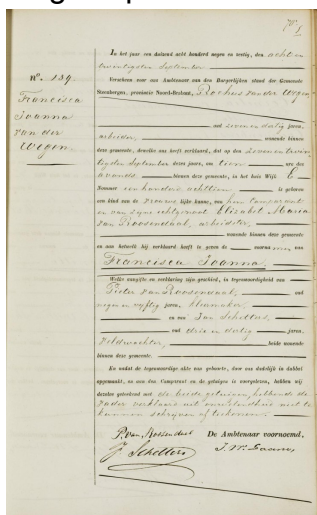 In het jaar een duizend acht honderd negen en zestig, den achtentwintigsten September
Verscheen voor ons Ambtenaar van den Burgerlijken stand der Gemeente
Steenbergen, provincie Noord-Braband, Rochus van der Wegen
nº. 139.
Francisca
Joanna
van der
Wegen.
oud zeven en dertig jaren,
arbeider, wonende binnen
deze gemeente, dewelke ons heeft verklaard, dat op den zeven en twin
tigsten September dezes jaars, om tien ure des
avonds binnen deze gemeente, in het huis Wijk E
Nommer een honderd achttien is geboren
een kind van de vrouwelijke kunne, van hem Comparant
en van zijne echtgenoot Elizabet Maria
van Roosendaal, arbeidster,
wonende binnen deze gemeente
en aan hetwelk hij verklaard heeft te geven de voornamen van
Francisca Joanna.
Welke aangifte en verklaring zijn geschied, in tegenwoordigheid van
Pieter van Roosendaal, oud
negen en vijftig jaren, kleermaker,
en van Jan Schellers,
oud drie en dertig jaren,
veldwachter, beide wonende
binnen deze gemeente.
En nadat de tegenwoordige akte van geboorte, door ons dadelijk in dubbel
opgemaakt, en aan den Comparant en de getuigen is voorgelezen, hebben wij
dezelve geteekend met de beide getuigen, hebbende de
vader verklaard uit onkunde niet te
kunnen schrijven of teekenen.
P. van Rosendaal De Ambtenaar voornoemd,
J. Schellers